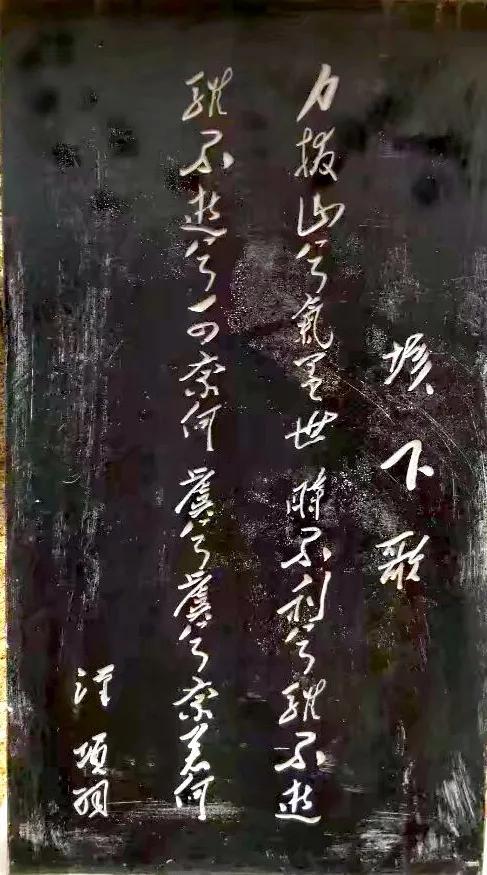 垓下歌
力拔山兮氣蓋世 時不利兮騅不逝
騅不逝兮可奈何 虞兮虞兮奈若何
漢 項羽